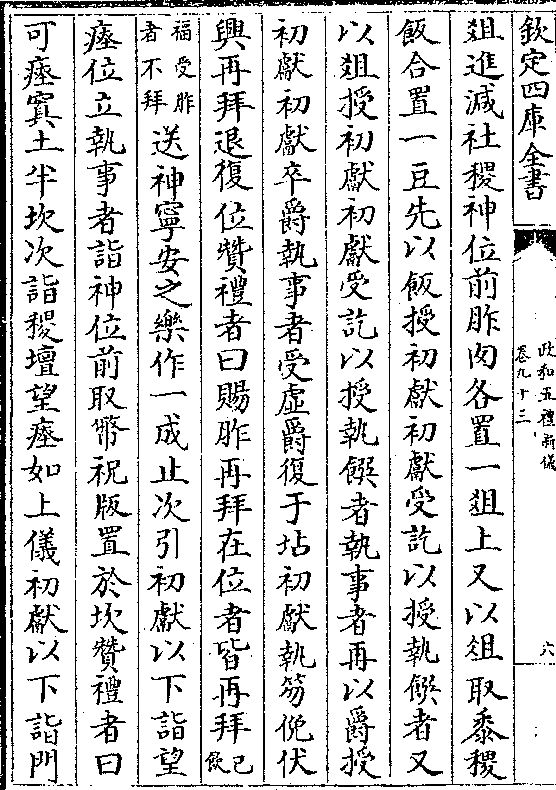 欽定四庫全書
政和五禮新儀
卷九十三
六
俎進減社稷神位前胙肉各置一俎上又以俎取黍稷
飯合置一豆先以飯授初獻初獻受訖以授執饌者又
以俎授初獻初獻受訖以授執饌者執事者再以爵授
初獻初獻卒爵執事者受虛爵復于坫初獻執笏俛伏
興再拜退復位贊禮者曰賜胙再拜在位者皆再拜已飲
福受胙者不拜送神寧安之樂作一成止次引初獻以下詣望
瘞位立執事者詣神位前取幣祝版置於坎贊禮者曰
可瘞窴土半坎次詣稷壇望瘞如上儀初獻以下詣門